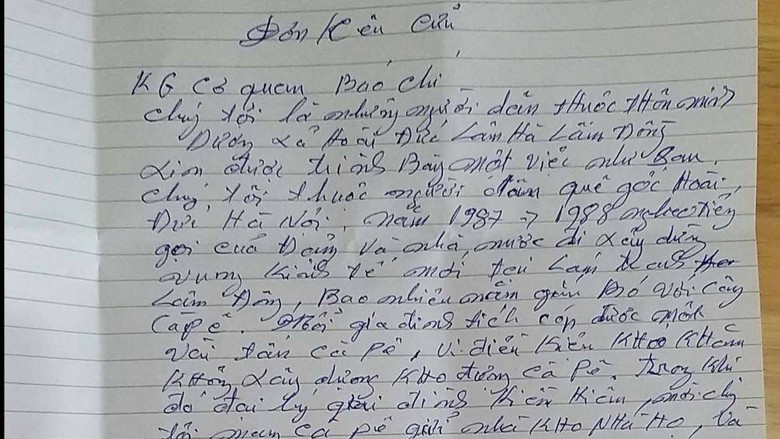 Đơn Kêu Cứu
KG Cơ quan Báo chí
Chúng tôi là những người dân thuộc thôn minh
Dương xã Hoài Đức Lâm Hà Lâm Đồng
xin được trình Bày một việc như sau
chúng tôi thuộc người dân quê gốc Hoài
Đức Hà Nội, năm 1987 → 1988 nghe tiếng
gọi của Đảng và nhà nước đi xây dựng
vùng kinh tế mới tại Lâm
Lâm Đồng, Bao nhiêu năm gắn Bó với cây
cà pê. Mỗi gia đình tích cóp được một
vài tấn cà pê, vì điều kiện khó khăn
không xây dựng kho đựng cà pê, trong khi
đó đại lý gia đình
tôi mang cà pê gửi nhà kho NHÃ HỌ, và